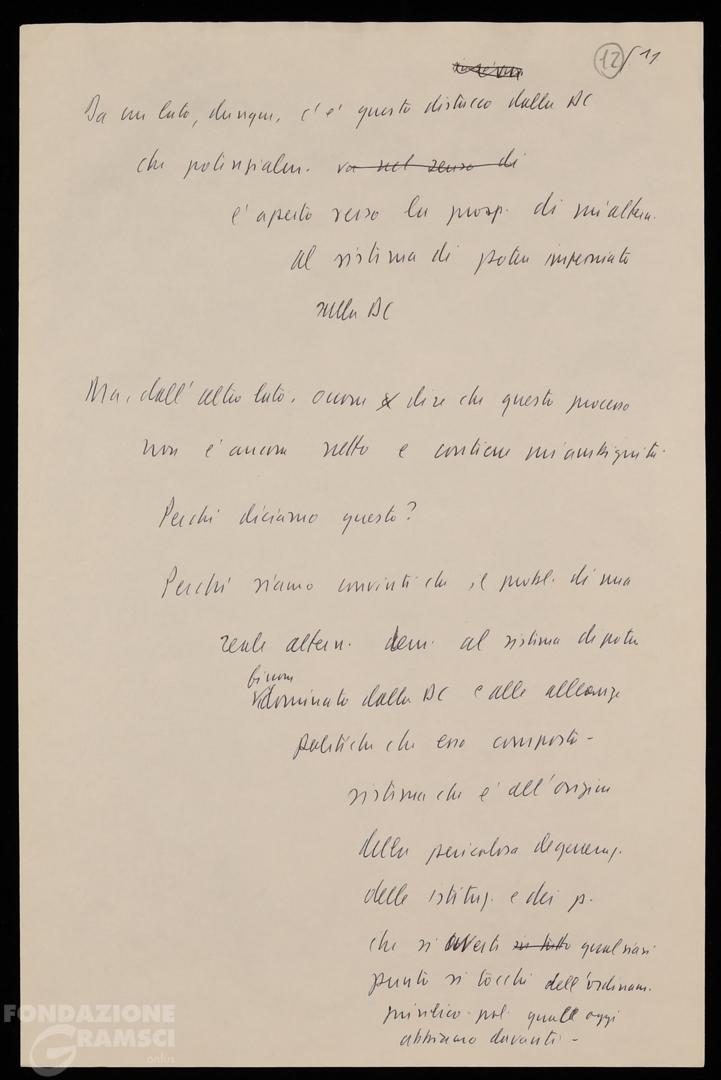 12/11
Da un lato, dunque, c'è questo distacco dalla DC
che potenzialm. va nel senso di
è aperto verso la prosp. di un'altern.
al sistema di potere imperniato
sulla DC
Ma, dall'altro lato, occorre dire che questo processo
non è ancora netto e contiene un'ambiguità.
Perché diciamo questo?
Perché siamo convinti che il probl. di una
reale altern. dem. al sistema di potere
dominato dalla DC e alle alleanze
politiche che esso comporta -
sistema che è all'origine
della pericolosa degeneraz.
delle istituz. e dei p.
che si avverte in tutto qualsiasi
punto si tocchi dell'ordinam.
giuridico-pol. quale oggi
abbiamo davanti -
FONDAZIONE
GRAMSCI
onlus